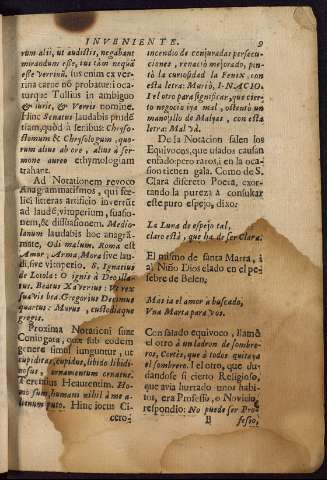 INVENIENTE. 9
rum alii, ut audistis, negabant
mirandum esse, ius tam nequã
esse verrinũ. ius enim ex ver-
rina carne nō probatur: iocatur
Tullius in ambiguo
& iuris, & Verris nomine.
Hinc Senatus laudabis prudẽ-
tiam, quòd à feribus: Chryso-
stomum & Chrysologum, quo-
rum alius ab ore, alius à ser-
mone aureo ethymologiam
trahant.
Ad Notationem revoco
Anagrammatismos, qui fæ-
lici litteras artificio invertũt
ad laudẽ, vituperium, suasio-
nem, & dissuasionem. Medio-
lanum laudabis hoc anagrã-
mate, Odi malum. Roma est
Amor, Arma, Mora sive lau-
di, sive vituperio. S. Ignatius
de Loiola: O ignis à Deo illa-
tus. Beatus Xaverius: Vt rex
suavis bea. Gregorius Decimus
quartus: Murus, custodiaque
gregis.
Proxima Notationi sunt
Coniugata, quæ sub eodem
genere simul iunguntur, ut
cupiditas, cupidus, libido libidi-
nosus, ornamentum ornatus.
Terentius Heautentim. Ho-
mo sum, humani nihil à me a-
lienum puto. Hinc iocus Ci-
cero-
incendio de conjuradas persecu-
ciones, renació mejorado, pin-
tò la curiosidad la Fenix, con
esta letra: Muriò, I-NACIO.
I el otro para significar, que cier-
to negocio iva mal, ostentò un
manojillo de Malvas, con esta
letra: Mal và.
De la Notacion salen los
Equivocos, que usados causan
enfado: pero raros, i en la oca-
sion tienen gala. Como de S.
Clara discreto Poeta, exor-
tando la pureza a consultar
este puro espejo, dixo:
La Luna de espejo tal,
claro està, que ha de ser Clara.
El mismo de santa Marta, i
al Niño Dios elado en el pe-
sebre de Belen.
Mas ia el amor a buscado,
Vna Marta para vos.
Con salado equivoco, llamò
el otro à un ladron de sombre-
ros, Cortès, que à todos quitava
el sombrero. I el otro, que du-
dandose si cierto Religioso,
que avia hurtado unos habi-
tos, era Professo, o Novicio,
respondiò: No puede ser Pro-
B fesso,